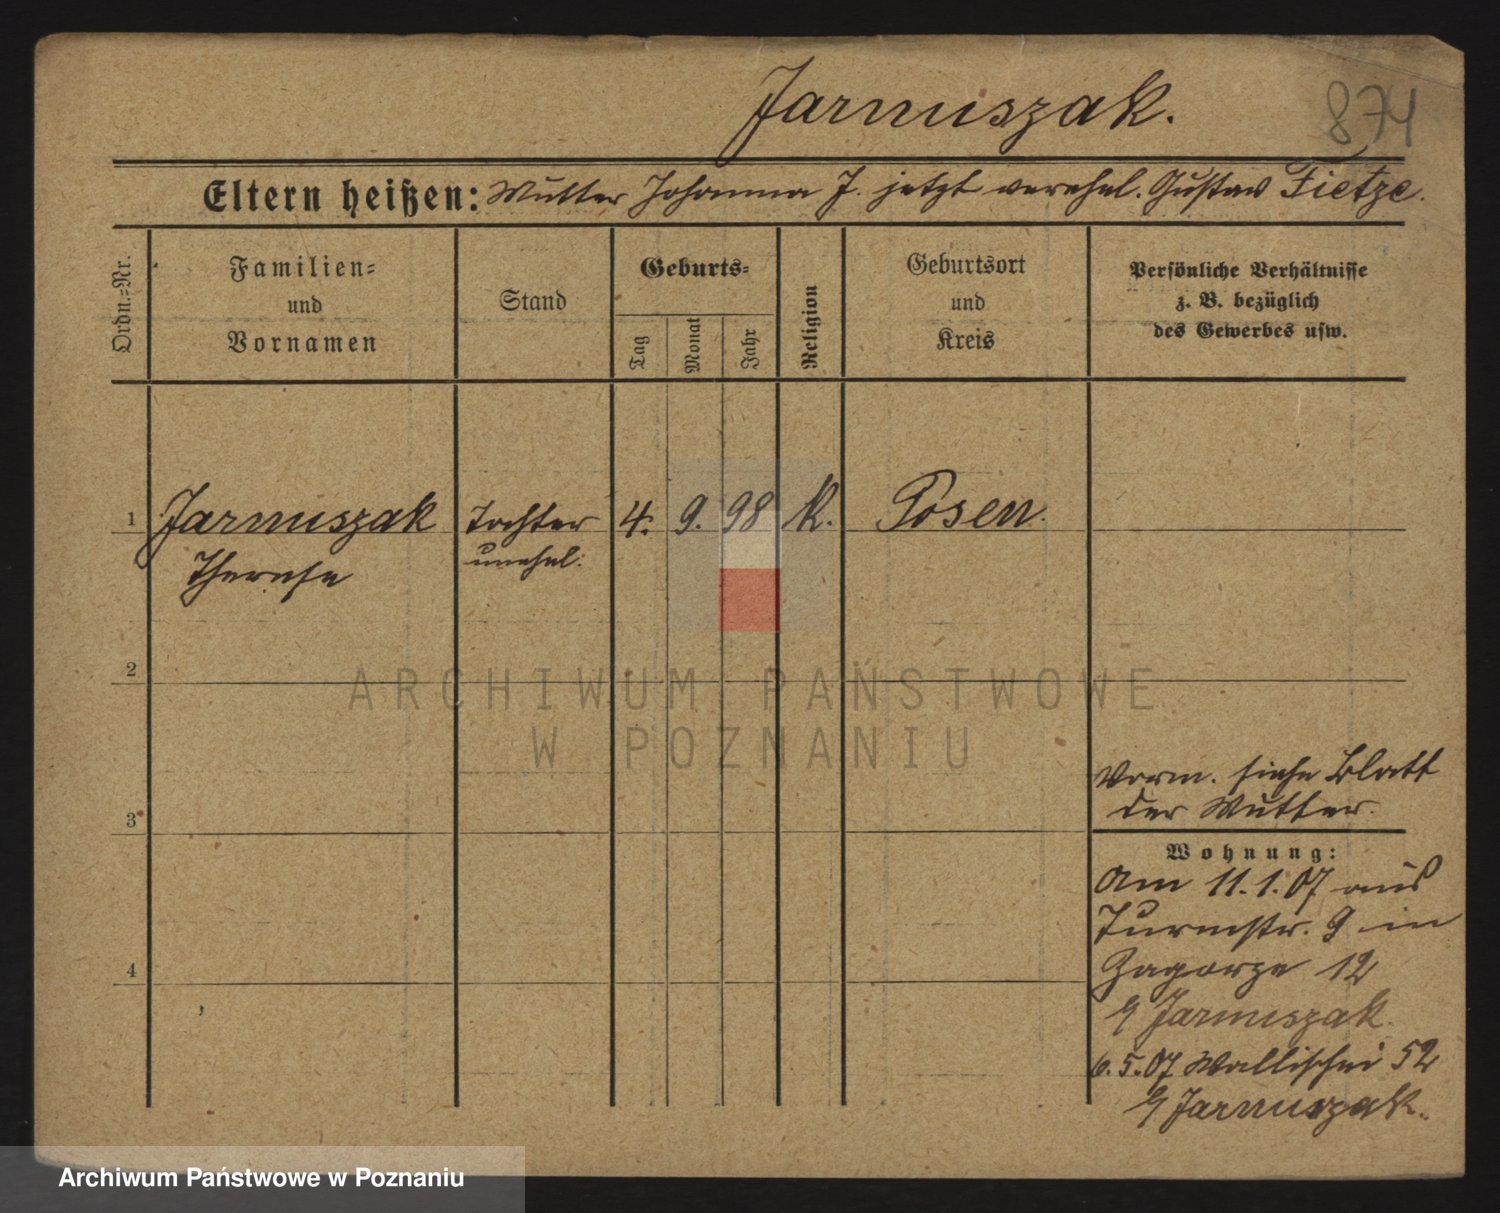 Jarmuszak.
874
Eltern heißen: Mutter Johanna J. jetzt verehel. Gustav Tietze.
Ordn.=Nr.
Familien=
und
Vornamen
Stand
Geburts=
Tag
Monat
Jahr
Religion
Geburtsort
und
Kreis
Persönliche Verhältnisse
z. B. bezüglich
des Gewerbes usw.
1 Jarmuszak Tochter 4. 9. 98 K. Posen.
Therese unehel.
2
3
4
Vorm. siehe Blatt
der Mutter.
Wohnung:
Am 11.1.07 aus
Turmstr. 9 in
Zagorze 12
Jarmuszak.
6.5.07 Wallischei 52
Jarmuszak.
ARCHIWUM PAŃSTWOWE
W POZNANIU
Archiwum Państwowe w Poznaniu